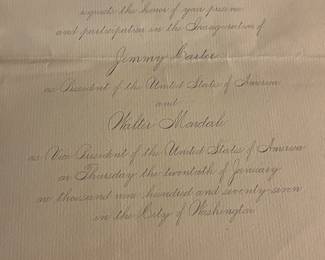 requests the honor of your presence
and participation in the Inauguration of
Jimmy Carter
as President of the United States of America
and
Walter Mondale
as Vice President of the United States of America
on Thursday the twentieth of January
one thousand nine hundred and seventy-seven
in the City of Washington